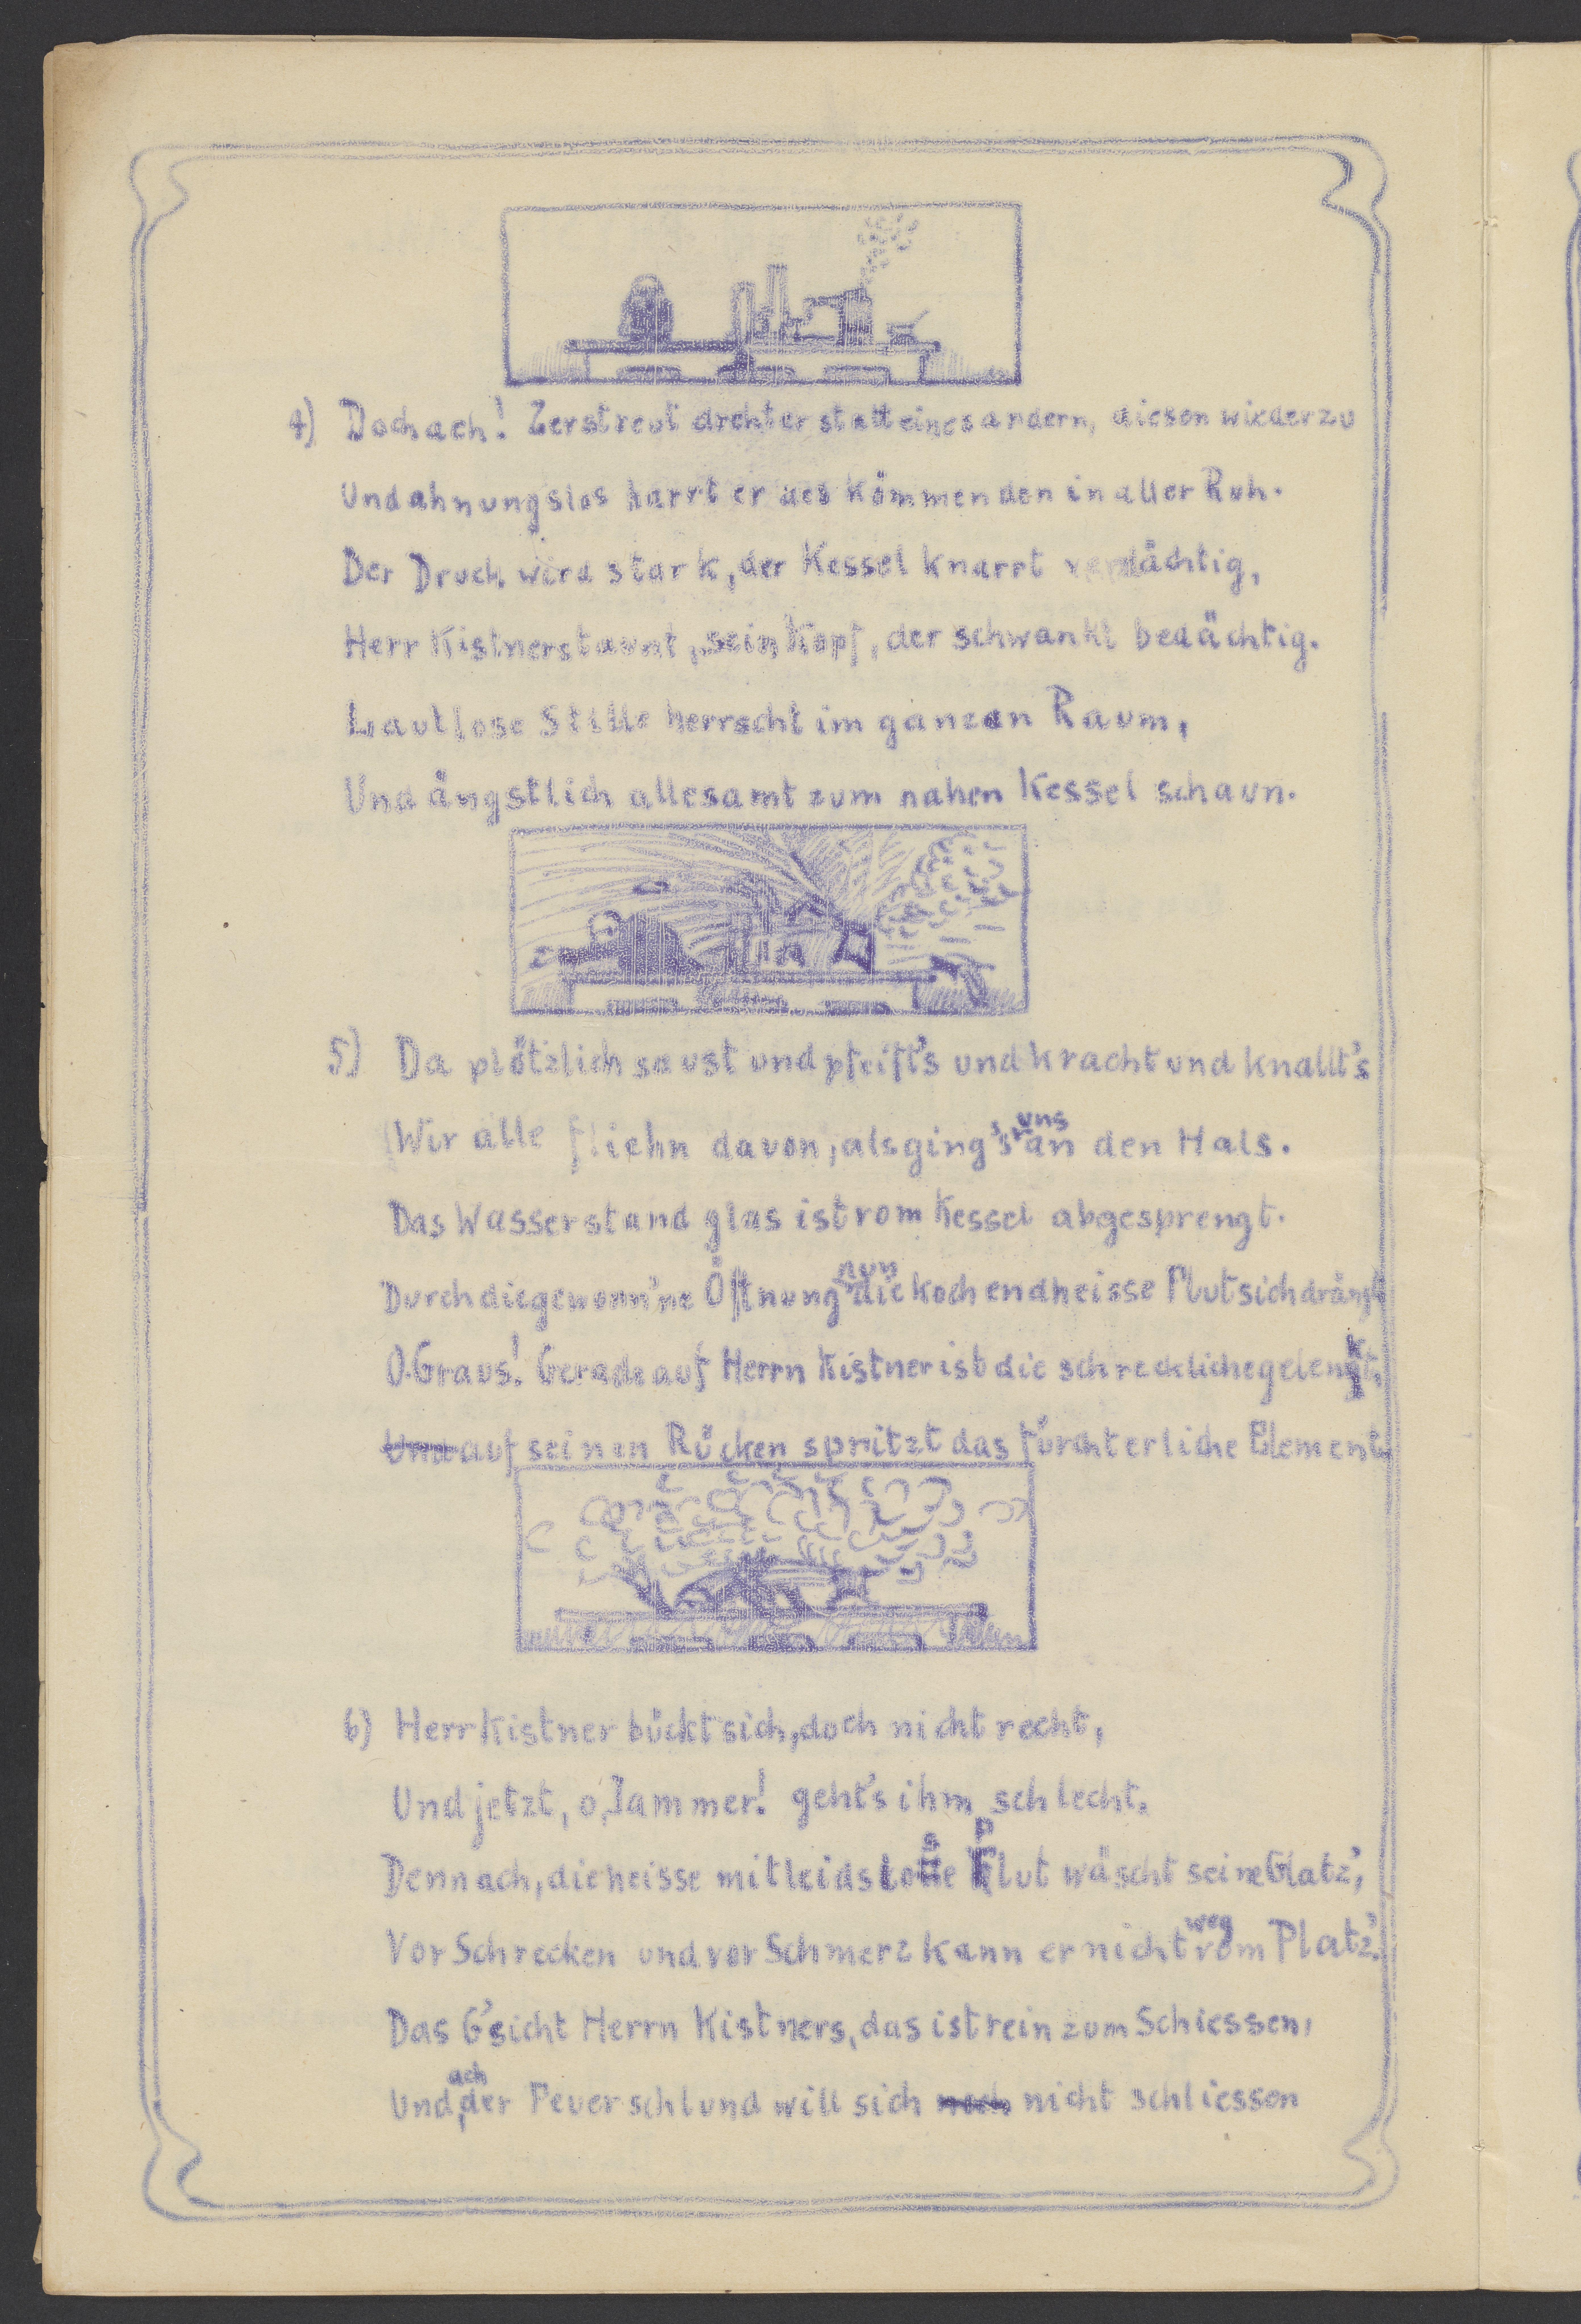 4) Doch ach! Zerstreut dreht er statt eines andern, diesen wieder zu
Und ahnungslos harrt er des Kömmenden in aller Ruh.
Der Druck wird stark, der Kessel knarrt verdächtig,
Herr Kistner staunt, sein Kopf, der schwankt bedächtig.
Lautlose Stille herrscht im ganzen Raum,
Und ängstlich allesamt zum nahen Kessel schaun.
5) Da plötzlich saust und pfeift's und kracht und knallt's
Wir alle fliehn davon, als ging's uns an den Hals.
Das Wasserstandglas ist vom Kessel abgesprengt.
Durch die gewonn'ne Öffnung nun die kochendheisse Flut sich drängt
O Graus! Gerade auf Herrn Kistner ist die schreckliche gelenkt,
Und auf seinen Rücken spritzt das fürchterliche Element.
6) Herr Kistner bückt sich, doch nicht recht,
Und jetzt, o, Jammer! geht's ihm schlecht.
Denn ach, die heisse mitleidslose Flut wäscht seine Glatz',
Vor Schrecken und vor Schmerz kann er nicht weg vom Platz'.
Das G'sicht Herrn Kistners, das ist rein zum Schiessen,
Und, ach der Feuerschlund will sich noch nicht schliessen